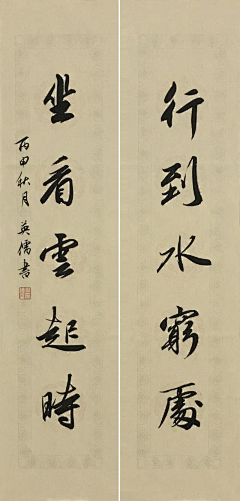 行到水窮處
坐看雲起時
丙申秋月 英儒書